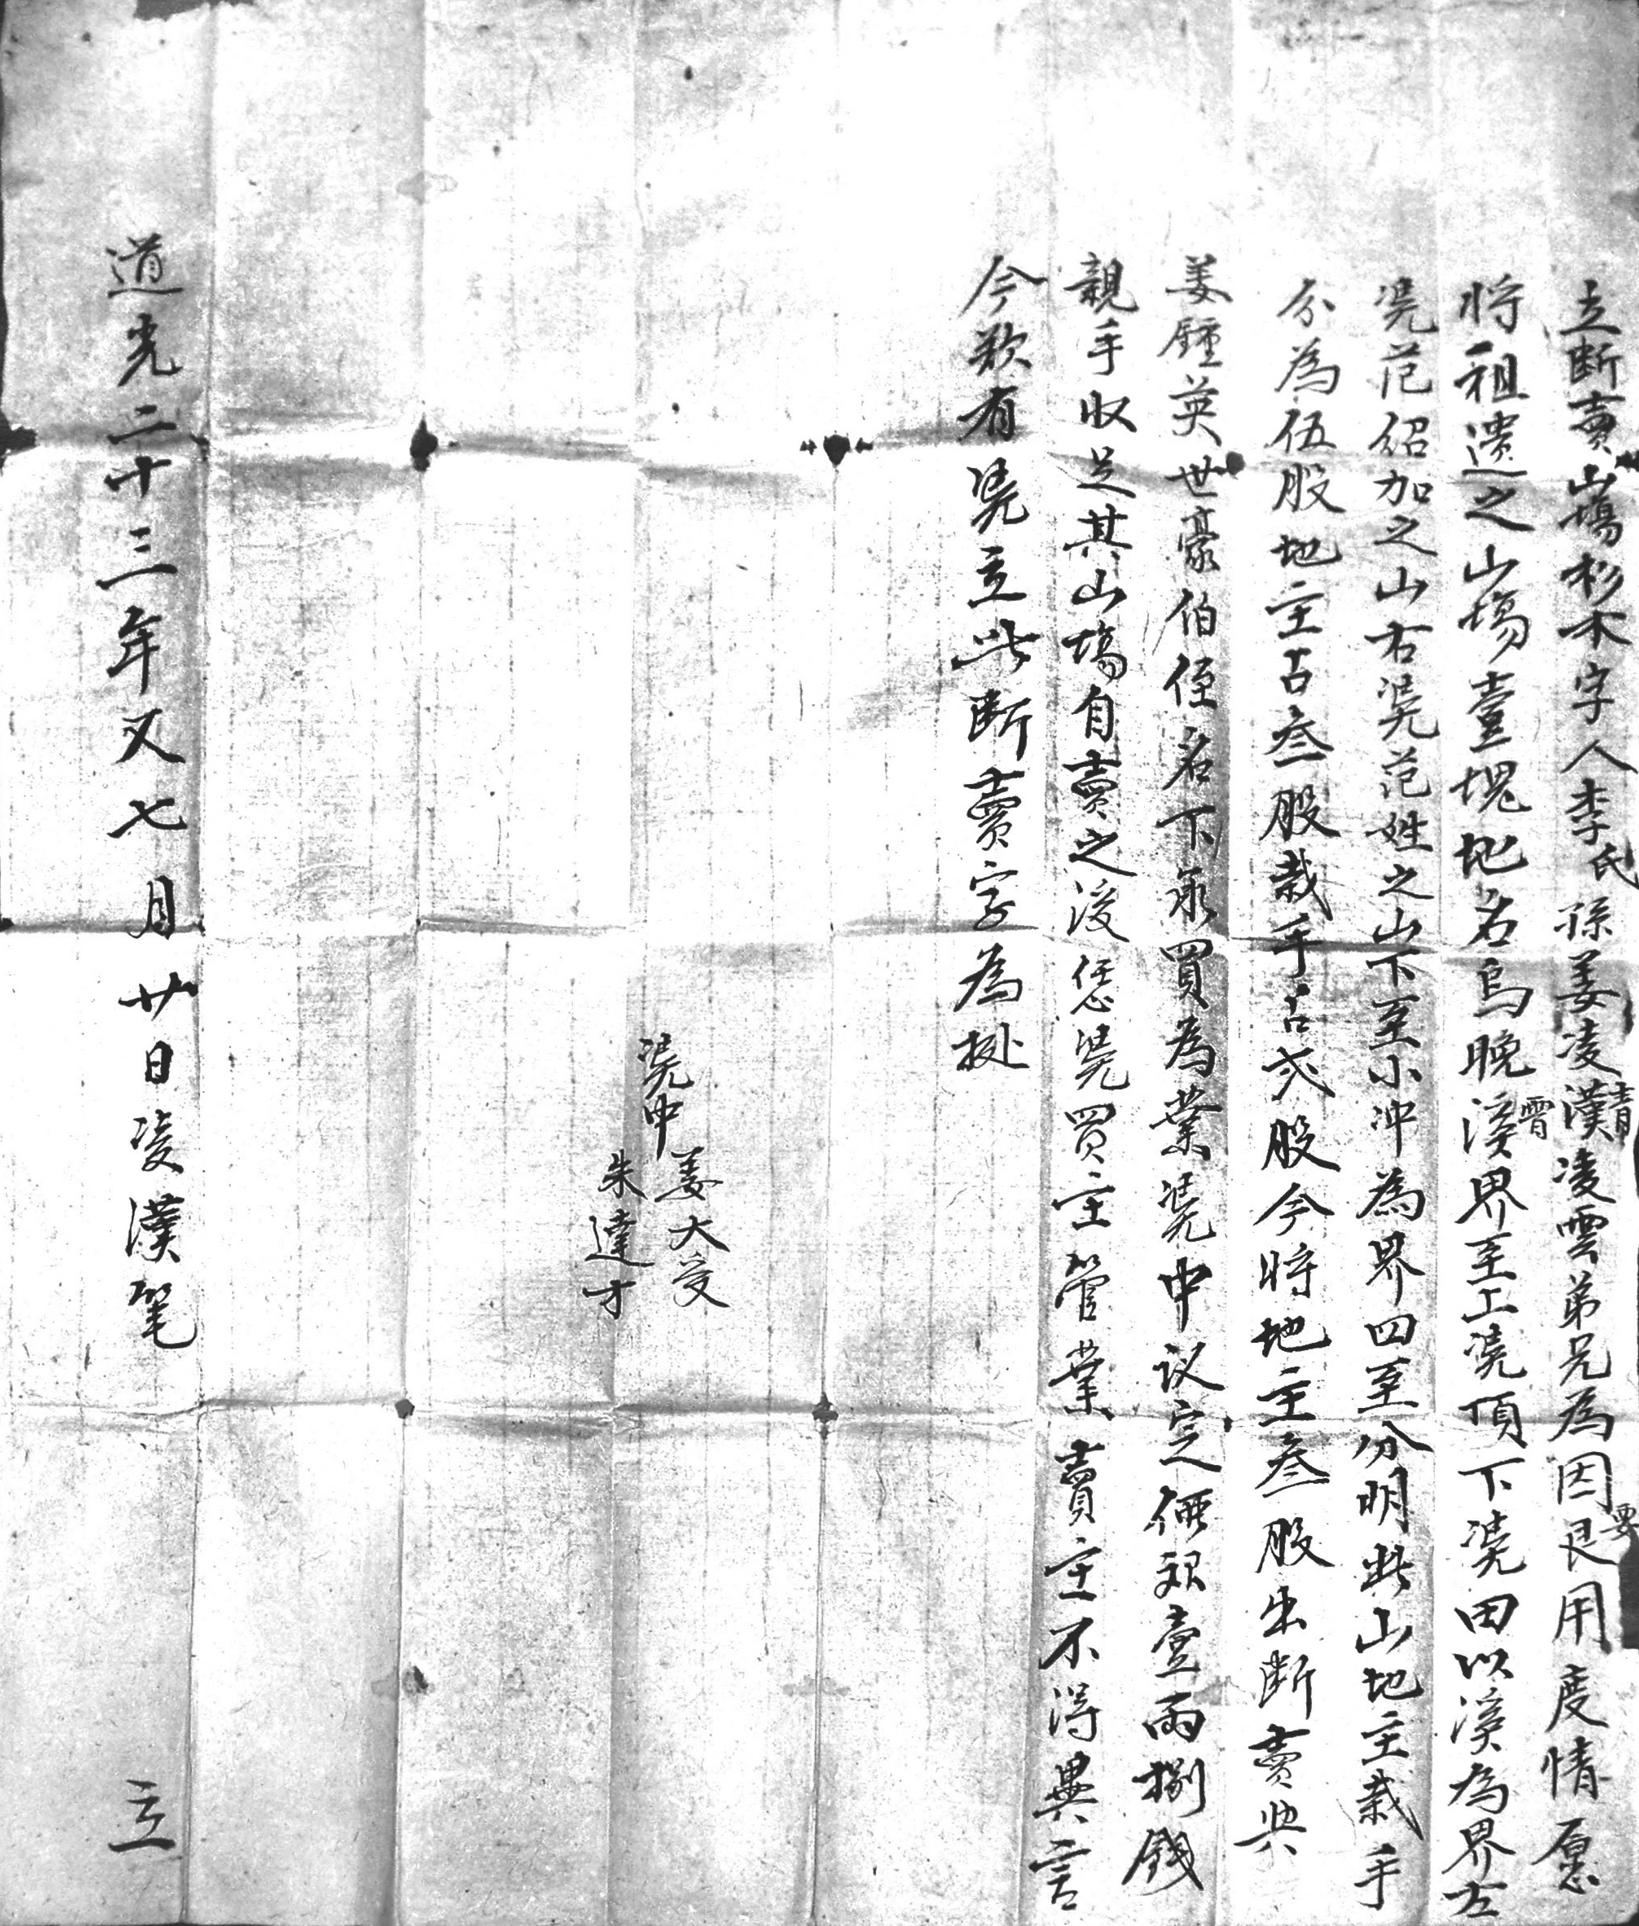 立断賣山塲杉木字人李氏孫姜凌漢凌青凌霄凌雲弟兄為因要艮用度情愿
将祖遺之山塲壹塊地名烏晚溪界至上凴頂下凴田以溪為界左
凴范紹加之山右凴范姓之山下至小冲為界四至分明此山地主栽手
分為伍股地主占叁股栽手占弍股今将地主叁股出断賣與
姜鍾英世豪伯侄名下承買為業凴中议定價艮壹両捌錢
親手收足其山塲自賣之後恁凴買主管業賣主不得異言
今欲有凴立此断賣字為㨿
凴中 姜大受
朱達才
道光二十三年又七月廿日凌漢笔 立